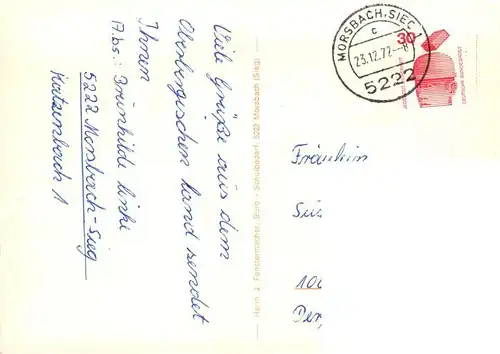 Viele Grüße aus dem
Oberbergischen Land sendet
Ihnen
Abs.: Brünhilde Linke
5222 Morsbach-Sieg
Katzenbach 1
Herm. J. Fenstermacher, Büro - Schulbedarf, 5222 Morsbach (Sieg)
MORSBACH, SIEG 1
c
23.12.72
5222
30
DEUTSCHE BUNDESPOST
Fräulein